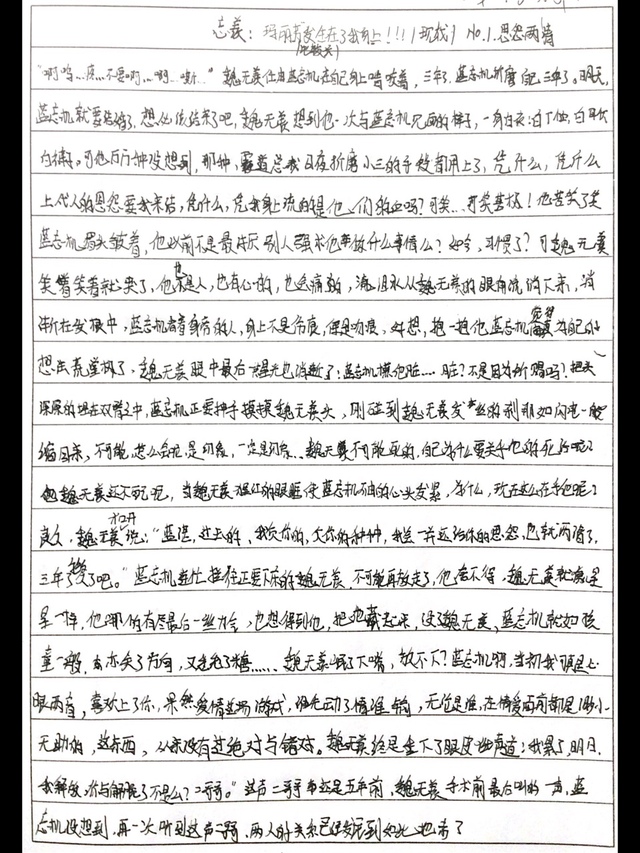 忘羡：玛丽苏发生在了我身上！！！(现代) NO.1.恩怨两清
魏无羡任由蓝忘机在自己身上啃咬着，三年了，蓝忘机折磨自己三年了。明天，
蓝忘机就要结婚了，想必该结束了吧，魏无羡想到他一次与蓝忘机见面的样子，一身白衣：白T恤，白
可他万万没想到，那种，霸道总裁日夜折磨小三的手段都用上了，凭什么，凭什么
上代人的恩怨要我来结，凭什么，凭我身上流的是他们的血吗？可笑…可笑至极！他苦笑了笑
蓝忘机眉头皱着，他以前不是最讨厌别人强求他去做什么事情么？如今，习惯了？可魏无羡
笑着笑着就哭了，他也是人，也有心的，也会痛的，流泪从魏无羡的眼角流了下来，消
失在发根中，蓝忘机看着身旁的人，身上不是伤痕，便是吻痕，好想，抱一抱他蓝忘机觉得为自己的
想法荒唐极了，魏无羡眼中最后一点星光也消散了：蓝忘机嫌他脏……脏？不是因为你赐吗？把头
深深的埋在双臂之中，蓝忘机正要伸手摸摸魏无羡头，刚碰到魏无羡发丝的刹那如闪电一般
缩回来，不可能，怎么会呢，是幻象，一定是幻象…魏无羡不可能死的，自己为什么要关乎他的死活呢？
魏无羡还不死呢，当魏无羡猩红的眼眶使蓝忘机不由的心头发紧，为什么，现在这么在乎他呢？
良久，魏无羡才开口说：“蓝湛，过去的，我欠你的，欠你的种种，我会一并还给你的恩怨，也就两清了，
三年了，够了吧。”蓝忘机连忙拦住正要下床的魏无羡，不可能再放走了，他舍不得，魏无羡就像是
星一样，他哪怕有尽最后一丝力气，也想得到他，把他藏起来，没了魏无羡，蓝忘机就如孩
童一般，去亦失了方向，又丢了糖……魏无羡抿了下嘴，放不下？蓝忘机啊，当初我可是
眼两看，喜欢上了你，果然爱情这场游戏，谁先动了情谁输，无论是谁，在情爱面前都是渺小
无助的，这东西，从来没有过绝对与错对。魏无羡终是垂下了眼皮幽声道：我累了，明日，
我解放，你与解脱了不是么？二哥哥。”这声二哥哥还是五年前，魏无羡手术前最后叫的一声，蓝
忘机没想到，再一次听到这声二哥哥，两人的关系已经发展到如此地步了